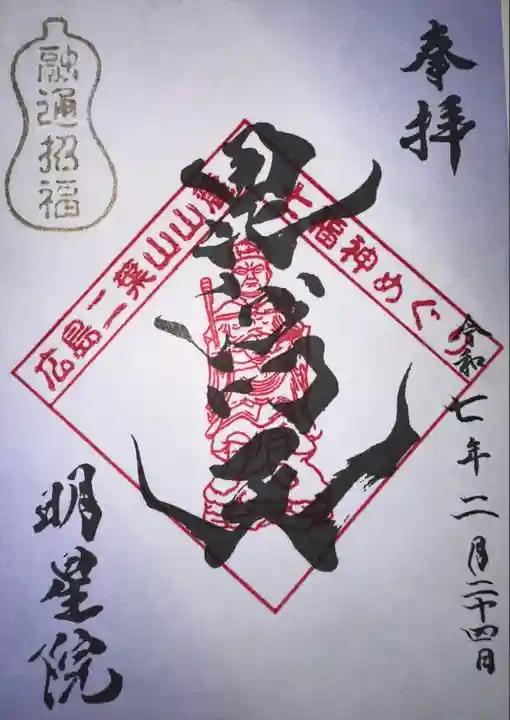 奉拝
令和七年二月二十四日
毘沙門天
広島二葉山山麓七福神めぐり
融通招福
明星院